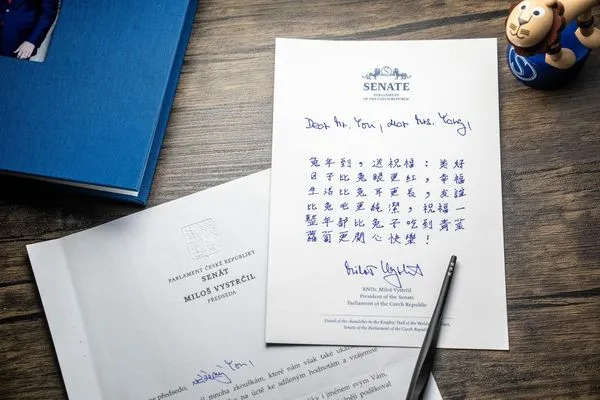 SENATE
PARLIAMENT
OF THE CZECH REPUBLIC
Dear Mr. You, dear Mrs. Yang,
兔年到，送祝福：美好
日子比兔眼更紅，幸福
生活比兔耳更長，友誼
比兔毛更純潔，祝福一
整年都比兔子吃到青菜
蘿蔔更開心快樂！
Miloš Vystrčil
RNDr. Miloš Vystrčil
President of the Senate
Parliament of the Czech Republic
Detail of the chandelier in the Knights' Hall of the
Senate of the Parliament of the Czech
PARLAMENT ČESKÉ REPUBLIKY
SENÁT
MILOŠ VYSTRČIL
PŘEDSEDA
předsedo, You,
mnoha zkouškám, které nám však také
na úctě ke sdíleným hodnotám a vzájemné
i jménem svým Vám,